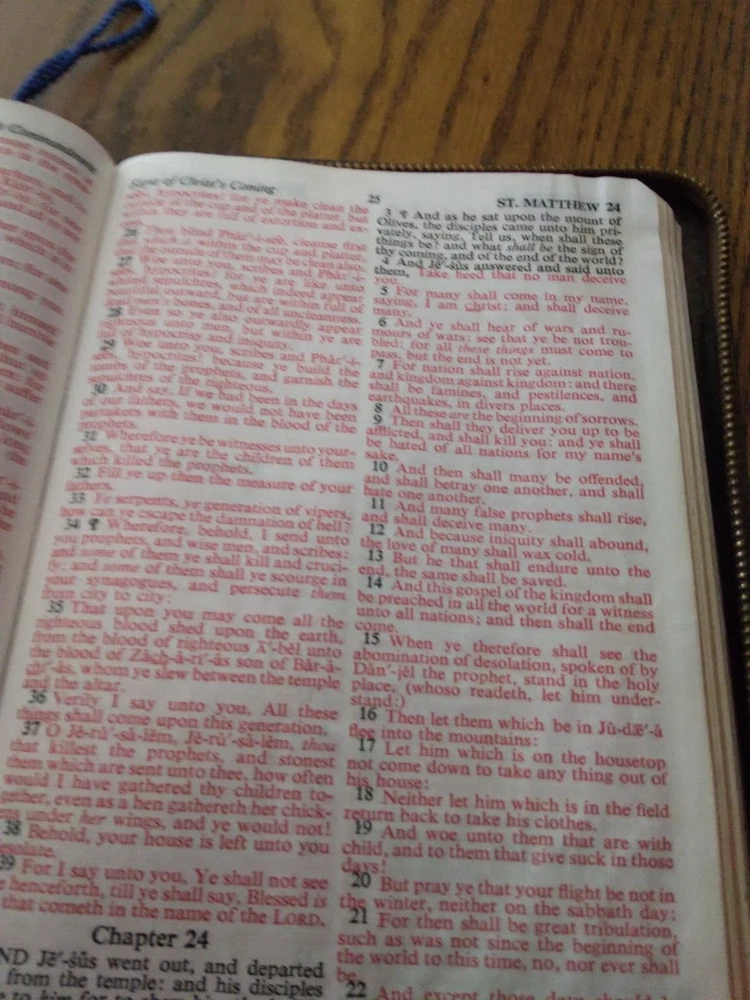 Signs of Christ's Coming
25
ST. MATTHEW 24
hypocrites! for ye make clean the
outside of the cup and of the platter, but
within they are full of extortion and ex-
26 Thou blind Phâr'-i-see, cleanse first
that which is within the cup and platter,
that the outside of them may be clean also.
27 Woe unto you, scribes and Phâr'-i-
sees, hypocrites! for ye are like unto
whited sepulchres, which indeed appear
beautiful outward, but are within full of
dead men's bones, and of all uncleanness.
28 Even so ye also outwardly appear
righteous unto men, but within ye are
full of hypocrisy and iniquity.
29 Woe unto you, scribes and Phâr'-i-
sees, hypocrites! because ye build the
tombs of the prophets, and garnish the
sepulchres of the righteous,
30 And say, If we had been in the days
of our fathers, we would not have been
partakers with them in the blood of the
prophets.
31 Wherefore ye be witnesses unto your-
selves, that ye are the children of them
which killed the prophets.
32 Fill ye up then the measure of your
fathers.
33 Ye serpents, ye generation of vipers,
how can ye escape the damnation of hell?
34 ¶ Wherefore, behold, I send unto
you prophets, and wise men, and scribes:
and some of them ye shall kill and cruci-
fy; and some of them shall ye scourge in
your synagogues, and persecute them
from city to city:
35 That upon you may come all the
righteous blood shed upon the earth,
from the blood of righteous Ā'-bĕl unto
the blood of Zăch-â-rī'-ăs son of Băr-â-
chī'-ăs, whom ye slew between the temple
and the altar.
36 Verily I say unto you, All these
things shall come upon this generation.
37 O Jĕ-rû'-sâ-lĕm, Jĕ-rû'-sâ-lĕm, thou
that killest the prophets, and stonest
them which are sent unto thee, how often
would I have gathered thy children to-
gether, even as a hen gathereth her chick-
ens under her wings, and ye would not!
38 Behold, your house is left unto you
desolate.
39 For I say unto you, Ye shall not see
me henceforth, till ye shall say, Blessed is
he that cometh in the name of the LORD.
Chapter 24
AND Jē'-ṡŭs went out, and departed
from the temple: and his disciples
3 ¶ And as he sat upon the mount of
Olives, the disciples came unto him pri-
vately, saying, Tell us, when shall these
things be? and what shall be the sign of
thy coming, and of the end of the world?
4 And Jē'-ṡŭs answered and said unto
them, Take heed that no man deceive
you.
5 For many shall come in my name,
saying, I am christ; and shall deceive
many.
6 And ye shall hear of wars and ru-
mours of wars: see that ye be not trou-
bled: for all these things must come to
pass, but the end is not yet.
7 For nation shall rise against nation,
and kingdom against kingdom: and there
shall be famines, and pestilences, and
earthquakes, in divers places.
8 All these are the beginning of sorrows.
9 Then shall they deliver you up to be
afflicted, and shall kill you: and ye shall
be hated of all nations for my name's
sake.
10 And then shall many be offended,
and shall betray one another, and shall
hate one another.
11 And many false prophets shall rise,
and shall deceive many.
12 And because iniquity shall abound,
the love of many shall wax cold.
13 But he that shall endure unto the
end, the same shall be saved.
14 And this gospel of the kingdom shall
be preached in all the world for a witness
unto all nations; and then shall the end
come.
15 When ye therefore shall see the
abomination of desolation, spoken of by
Dăn'-jĕl the prophet, stand in the holy
place, (whoso readeth, let him under-
stand:)
16 Then let them which be in Jû-dæ'-â
flee into the mountains:
17 Let him which is on the housetop
not come down to take any thing out of
his house:
18 Neither let him which is in the field
return back to take his clothes.
19 And woe unto them that are with
child, and to them that give suck in those
days!
20 But pray ye that your flight be not in
the winter, neither on the sabbath day:
21 For then shall be great tribulation,
such as was not since the beginning of
the world to this time, no, nor ever shall
be.
22 And except those days